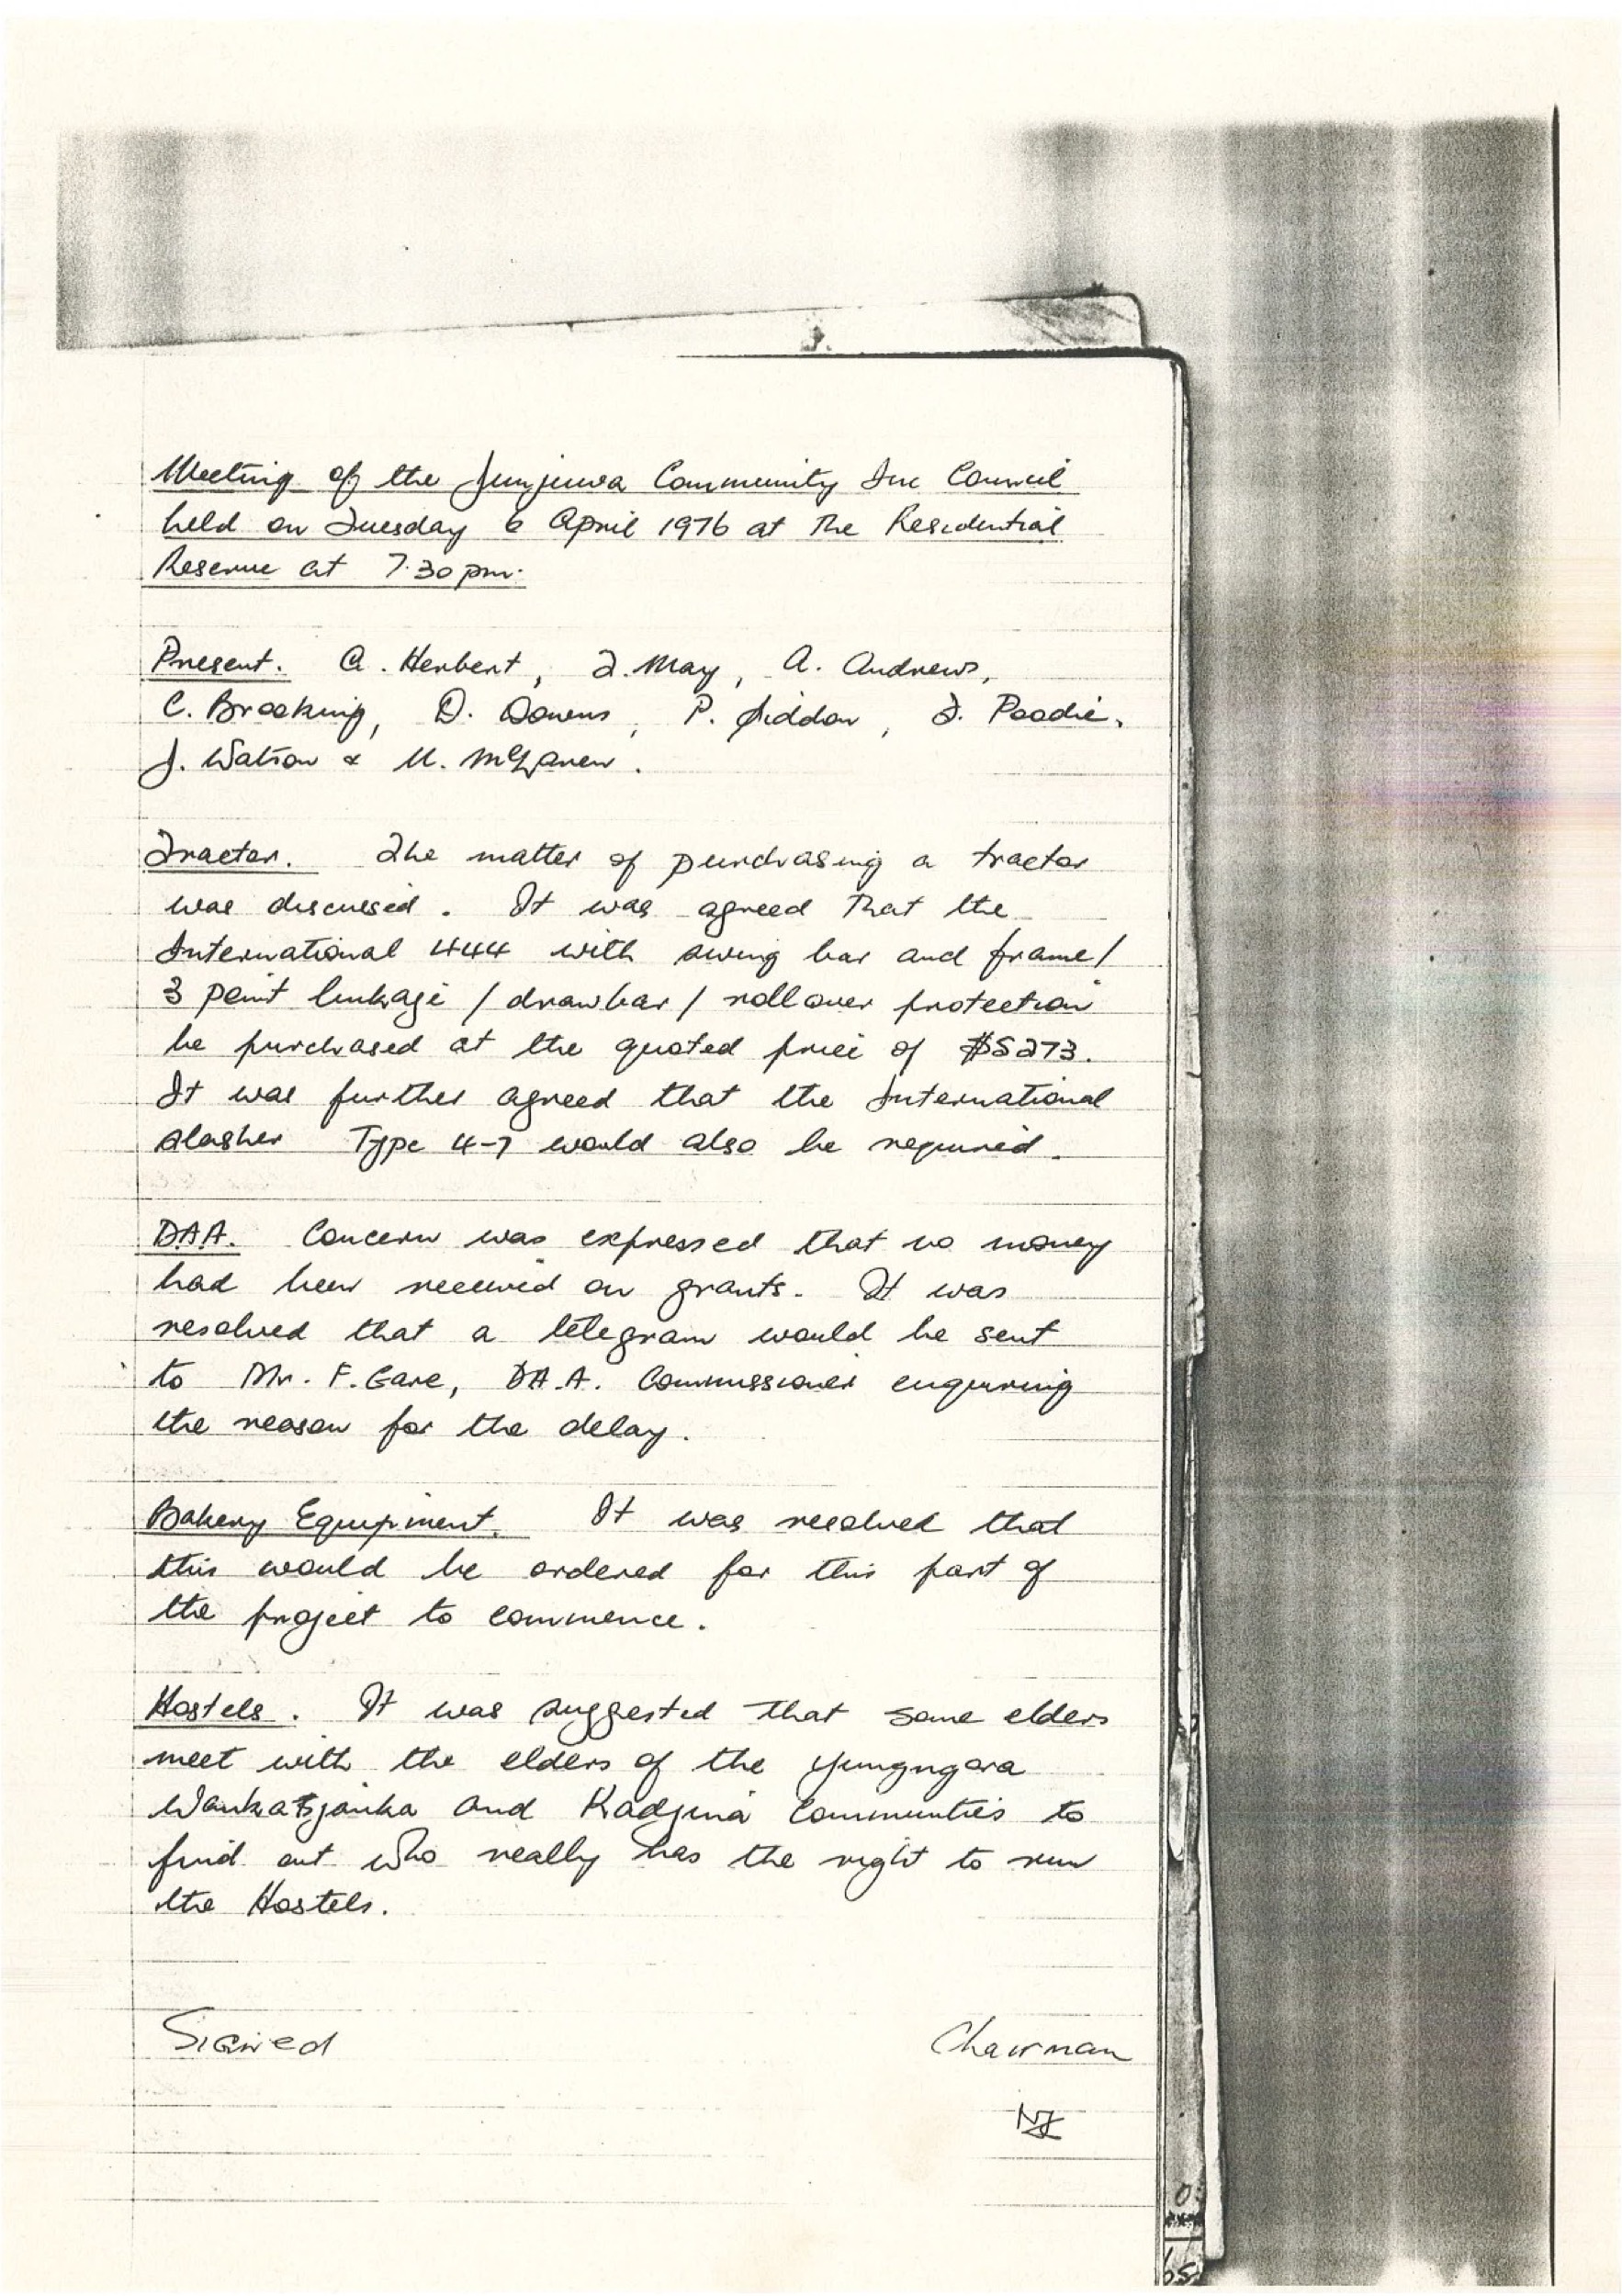 Meeting of the Junjuwa Community Inc Council
held on Tuesday 6 April 1976 at the Residential
Reserve at 7.30 pm.
Present. A. Herbert, T. May, A. Andrews,
C. Brooking, D. Downs, P. Siddon, T. Poodie,
J. Watson & M. McLaren.
Tractor. The matter of purchasing a tractor
was discussed. It was agreed that the
International 444 with swing bar and frame/
3 point linkage / drawbar / rollover protection
be purchased at the quoted price of $5273.
It was further agreed that the International
slasher Type 4-7 would also be required.
DAA. Concern was expressed that no money
had been received on grants. It was
resolved that a telegram would be sent
to Mr. F. Gare, D.A.A. Commissioner enquiring
the reason for the delay.
Bakery Equipment. It was resolved that
this would be ordered for this part of
the project to commence.
Hostels. It was suggested that some elders
meet with the elders of the Yungngara
Wankatjanka and Kadjina Communities to
find out who really has the right to run
the Hostels.
Signed Chairman